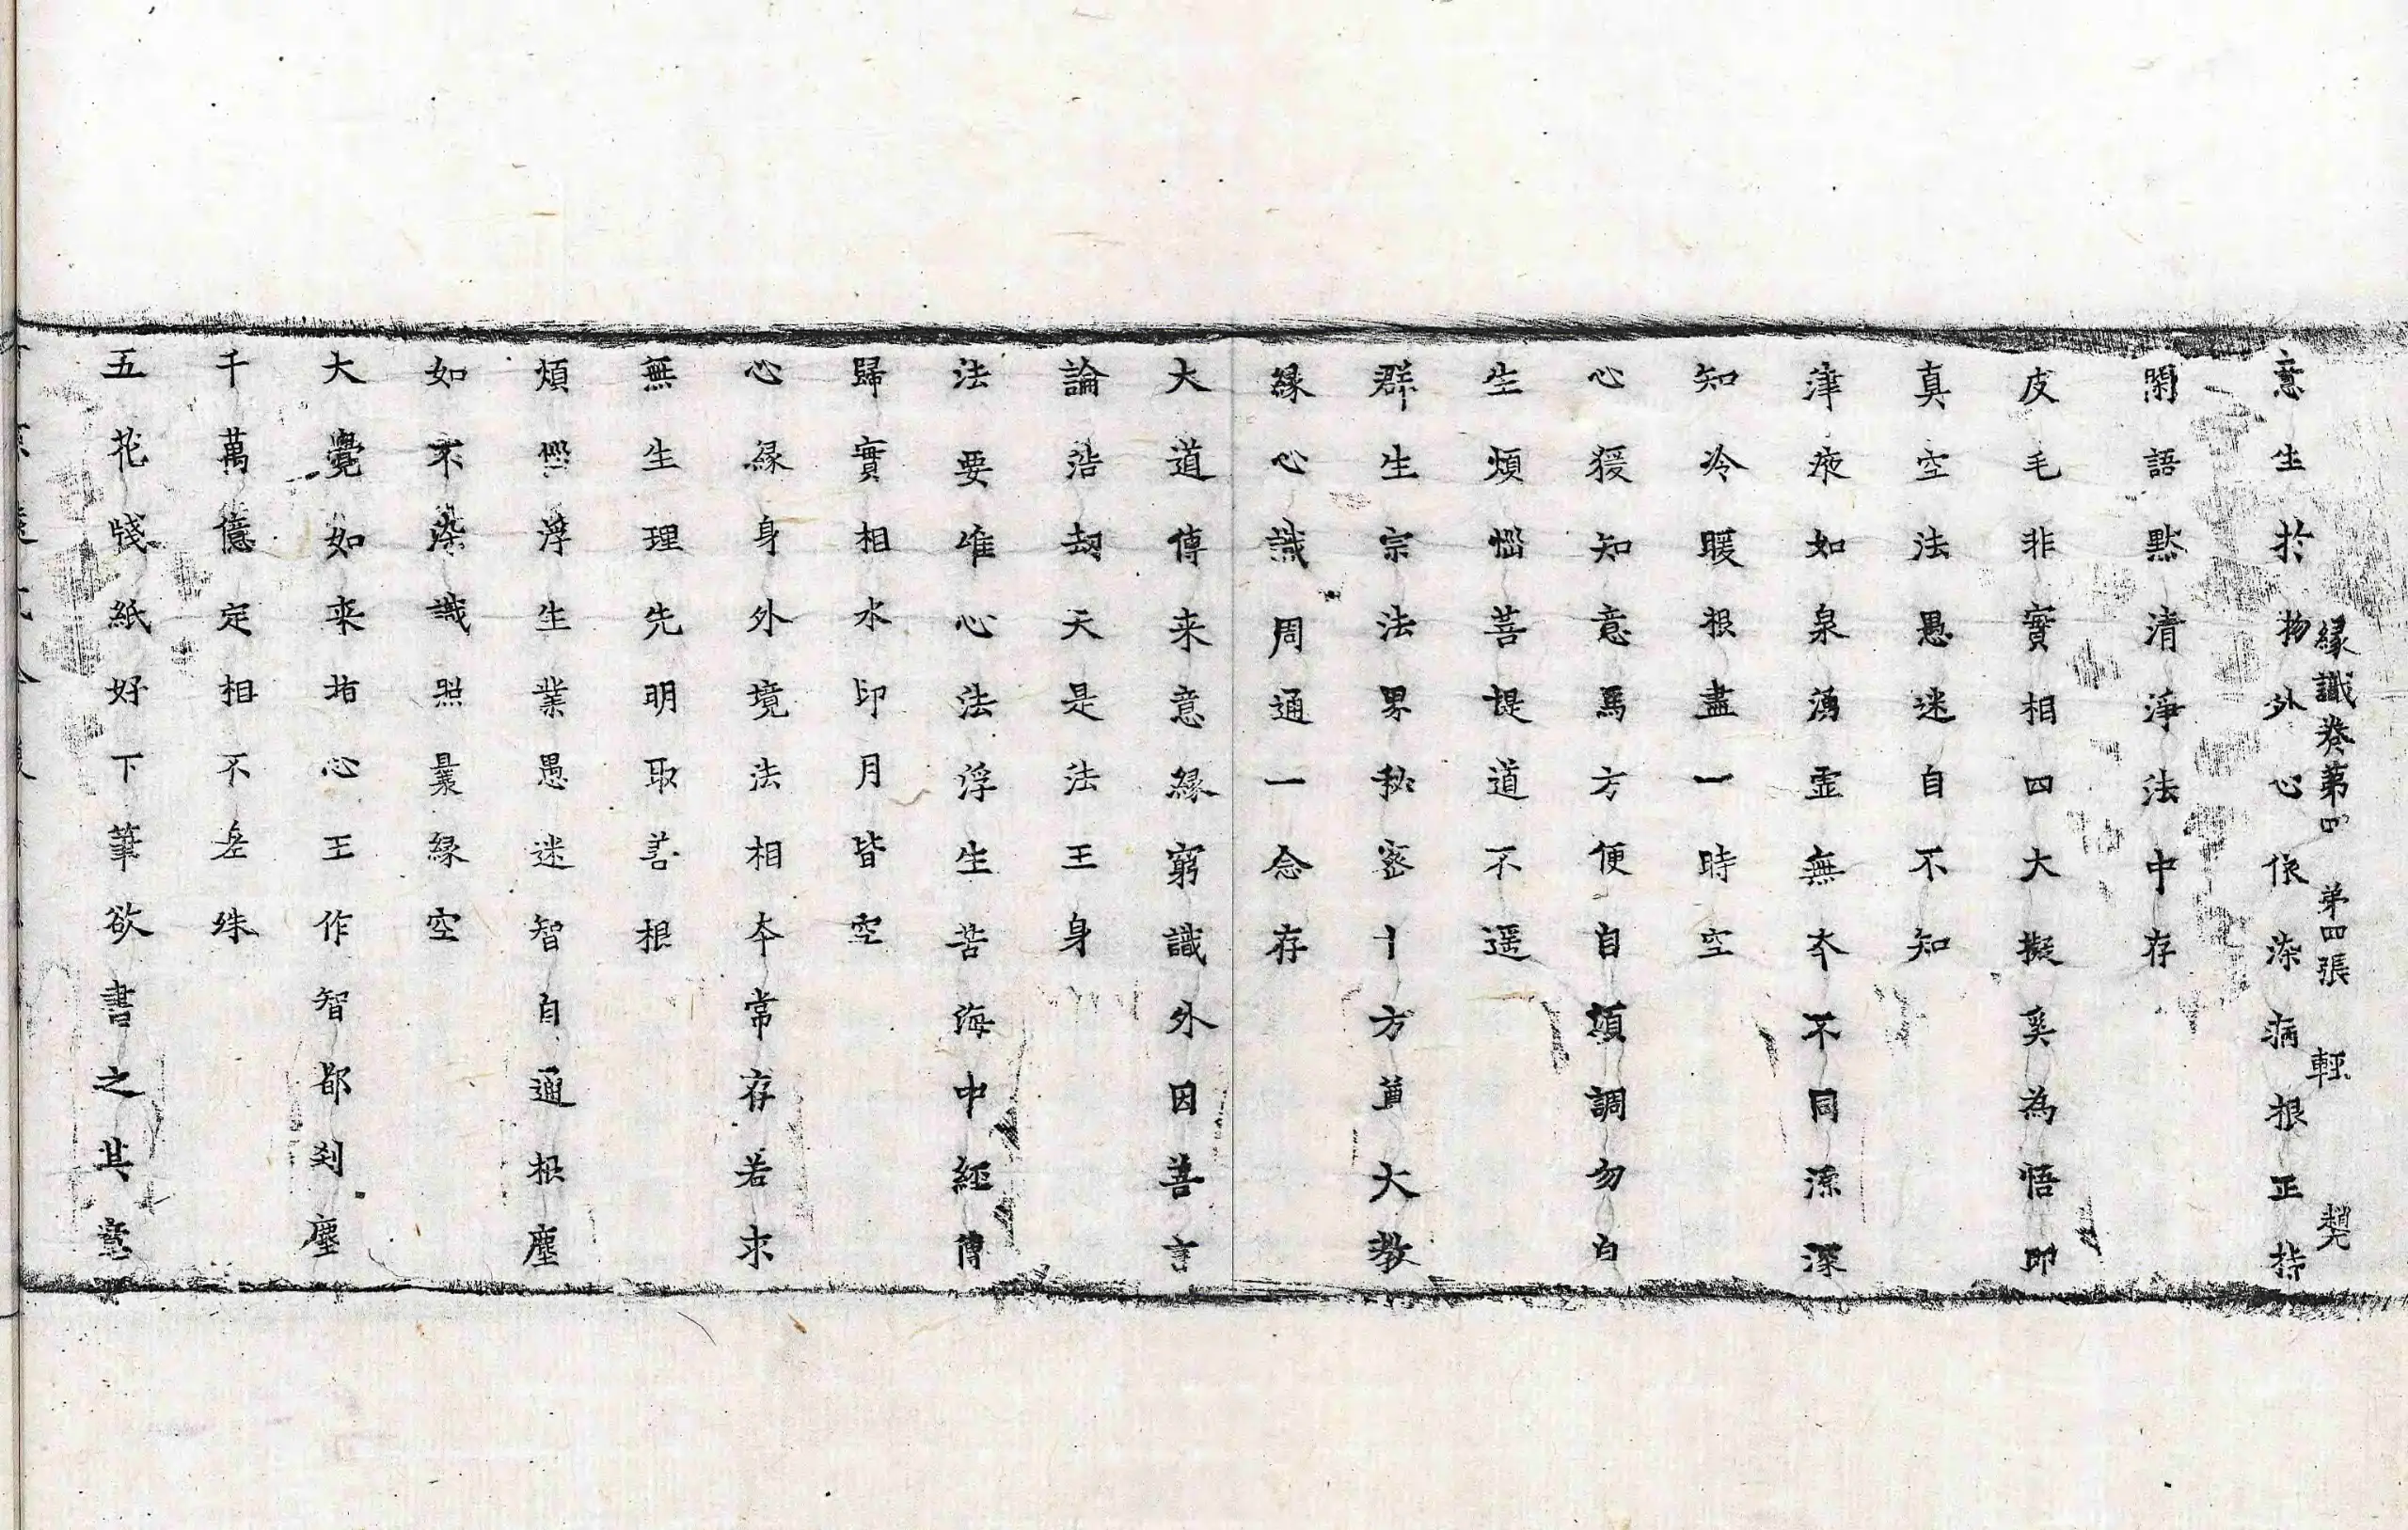 緣識卷第四　第四張　輕
意生於物外心依染病根正持
閑語默清淨法中存
皮毛非實相四大擬奚為悟即
真空法愚迷自不知
津液如泉湧霊無夲不同源深
知冷暖根盡一時空
心猨知意馬方便自須調勿白
生煩惱菩提道不遥
群生宗法界秘密十方尊大教
緣心識周通一念存
大道傳来意緣窮識外因善言
論浩劫天是法王身
法要唯心法浮生苦海中經傳
歸實相水印月皆空
心緣身外境法相夲常存若求
無生理先明取善根
煩惱浮生業愚迷智自通根塵
如不染識照曩緣空
大覺如来指心王作智都刹塵
千萬億定相不差殊
五花牋紙好下筆欲書之其意